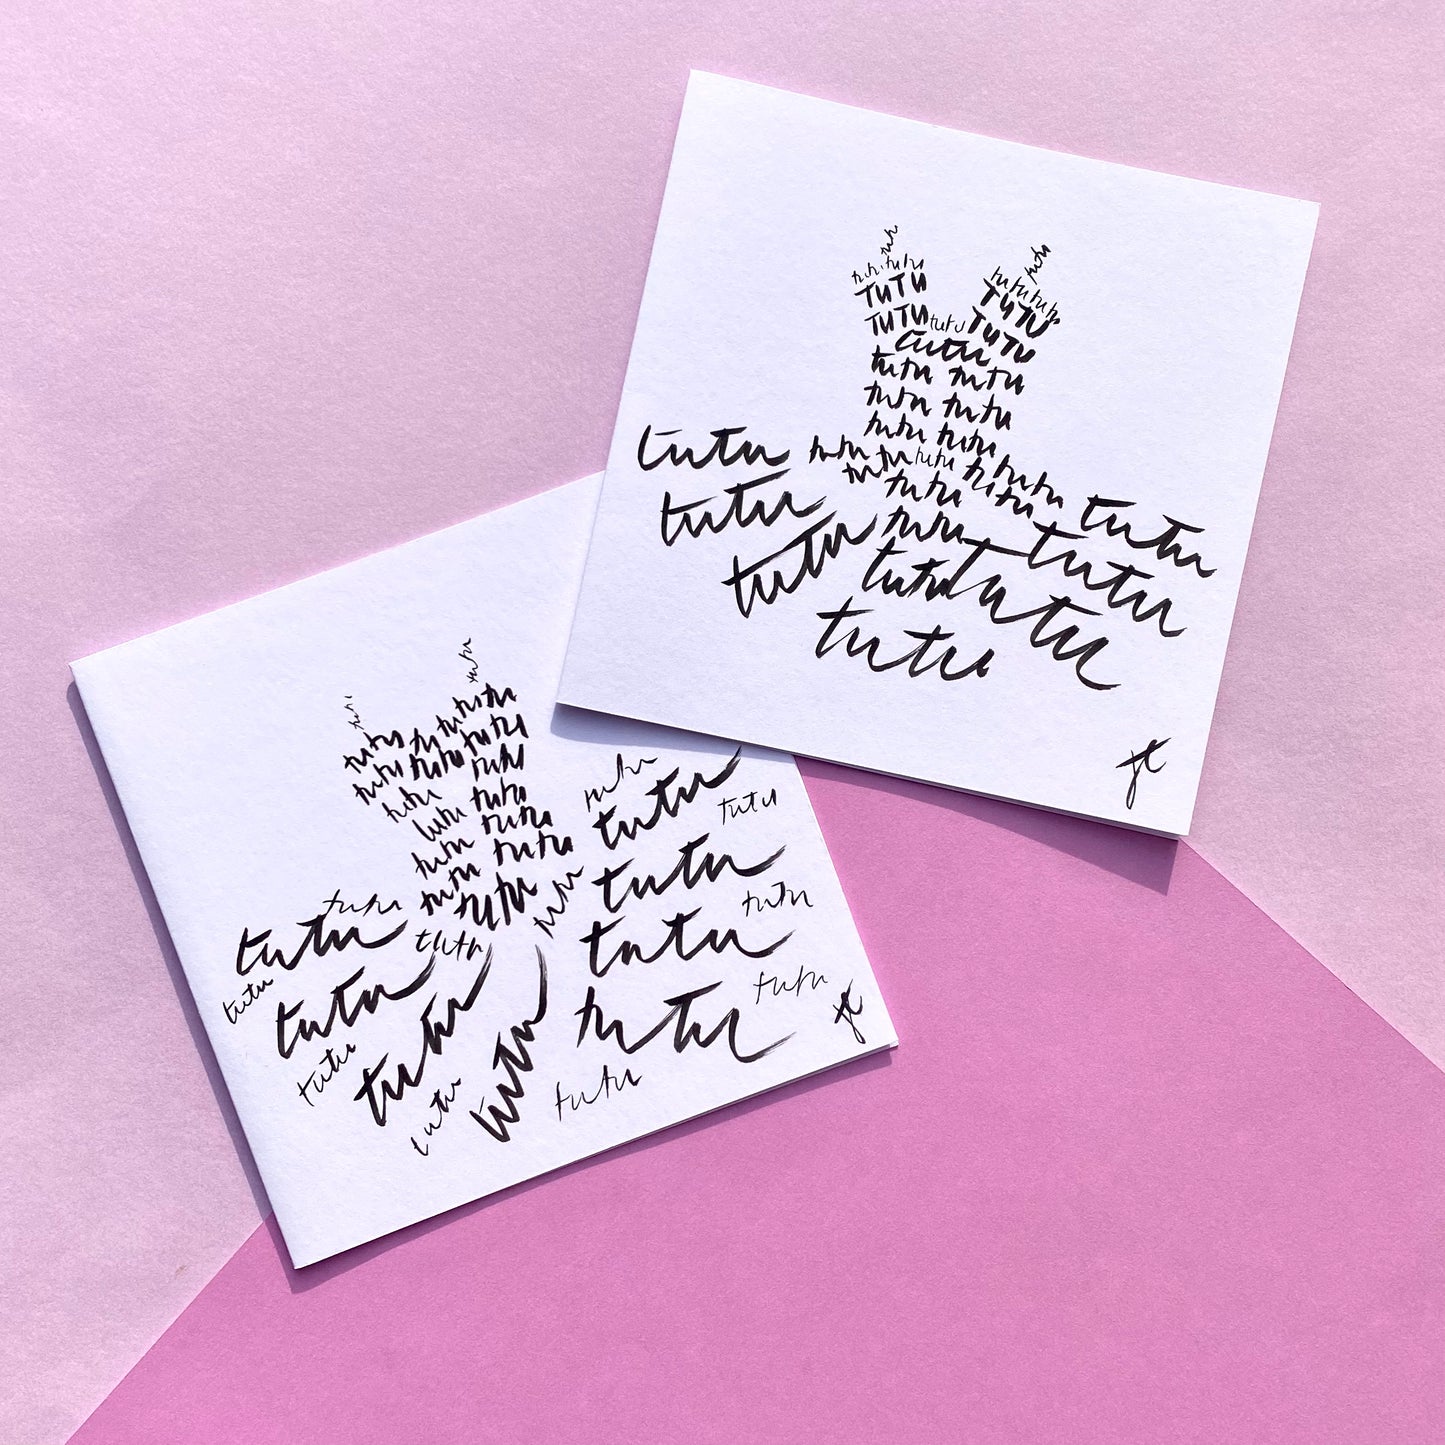 tutu tutu
tutu tutu tutu tutu
TUTU TUTU
TUTU tutu TUTU
tutu
tutu tutu
tutu tutu
tutu tutu
tutu tutu tutu tutu tutu tutu
tutu tutu tutu tutu
tutu tutu tutu
tutu tutu tutu
tutu tutu
tutu
tutu
tutu tutu
tutu tutu tutu tutu
tutu tutu tutu
tutu tutu
tutu tutu
tutu tutu
tutu tutu
tutu tutu
tutu tutu tutu
tutu tutu tutu
tutu tutu tutu
tutu tutu tutu
tutu tutu tutu
tutu tutu tutu
tutu tutu tutu
tutu tutu